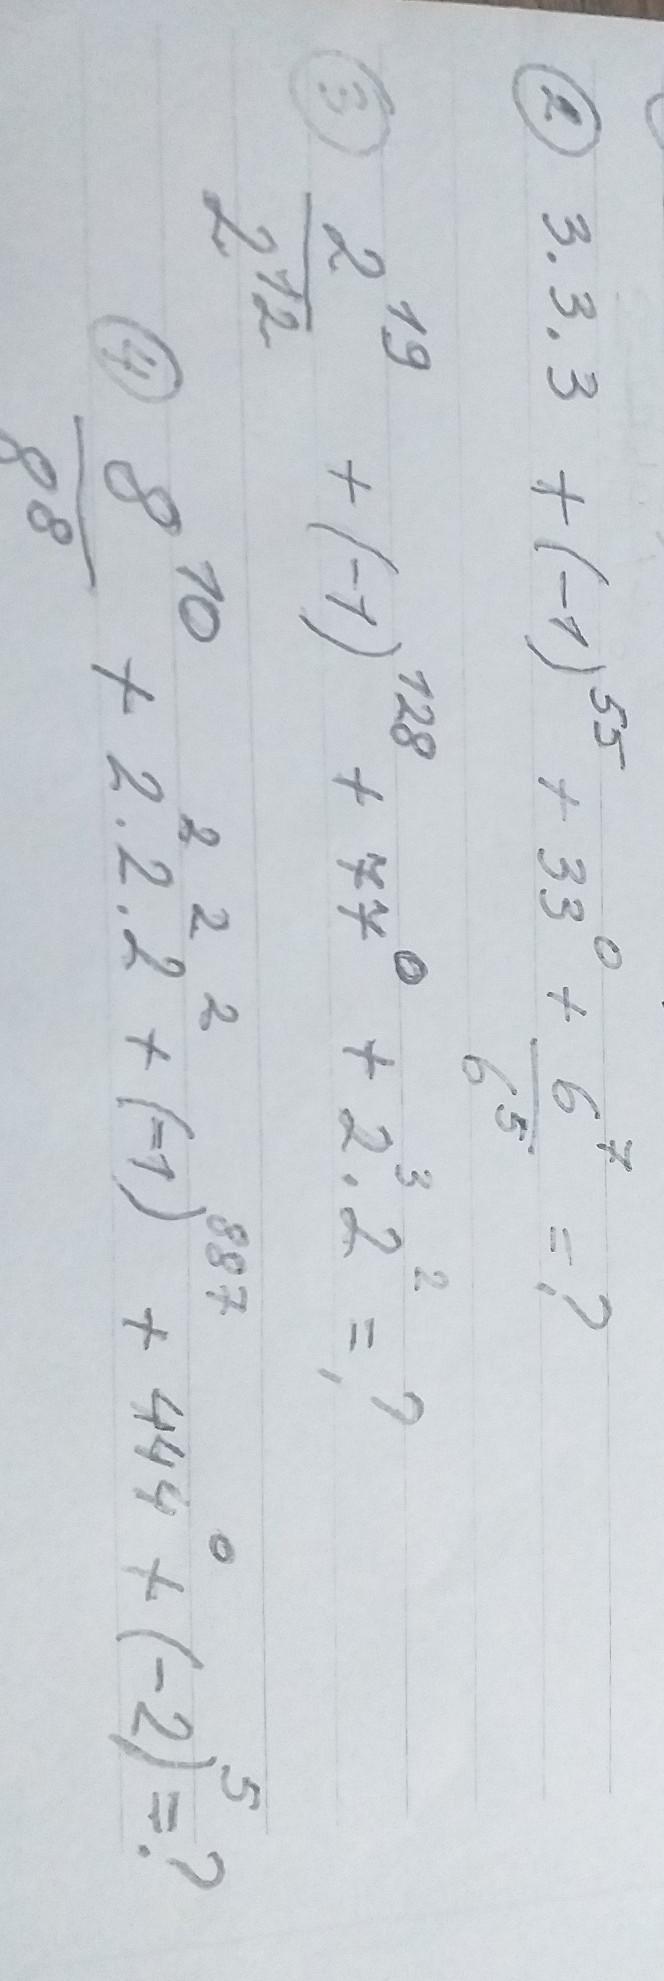 ② 3.3.3 + (-1)⁵⁵ + 33⁰ + 6⁷/6⁵ = ?
③ 2¹⁹/2¹² + (-1)¹²⁸ + 77⁰ + 2³.2² = ?
④ 8¹⁰/8⁸ + 2².2².2² + (-1)⁸⁸⁷ + 444⁰ + (-2)⁵ = ?